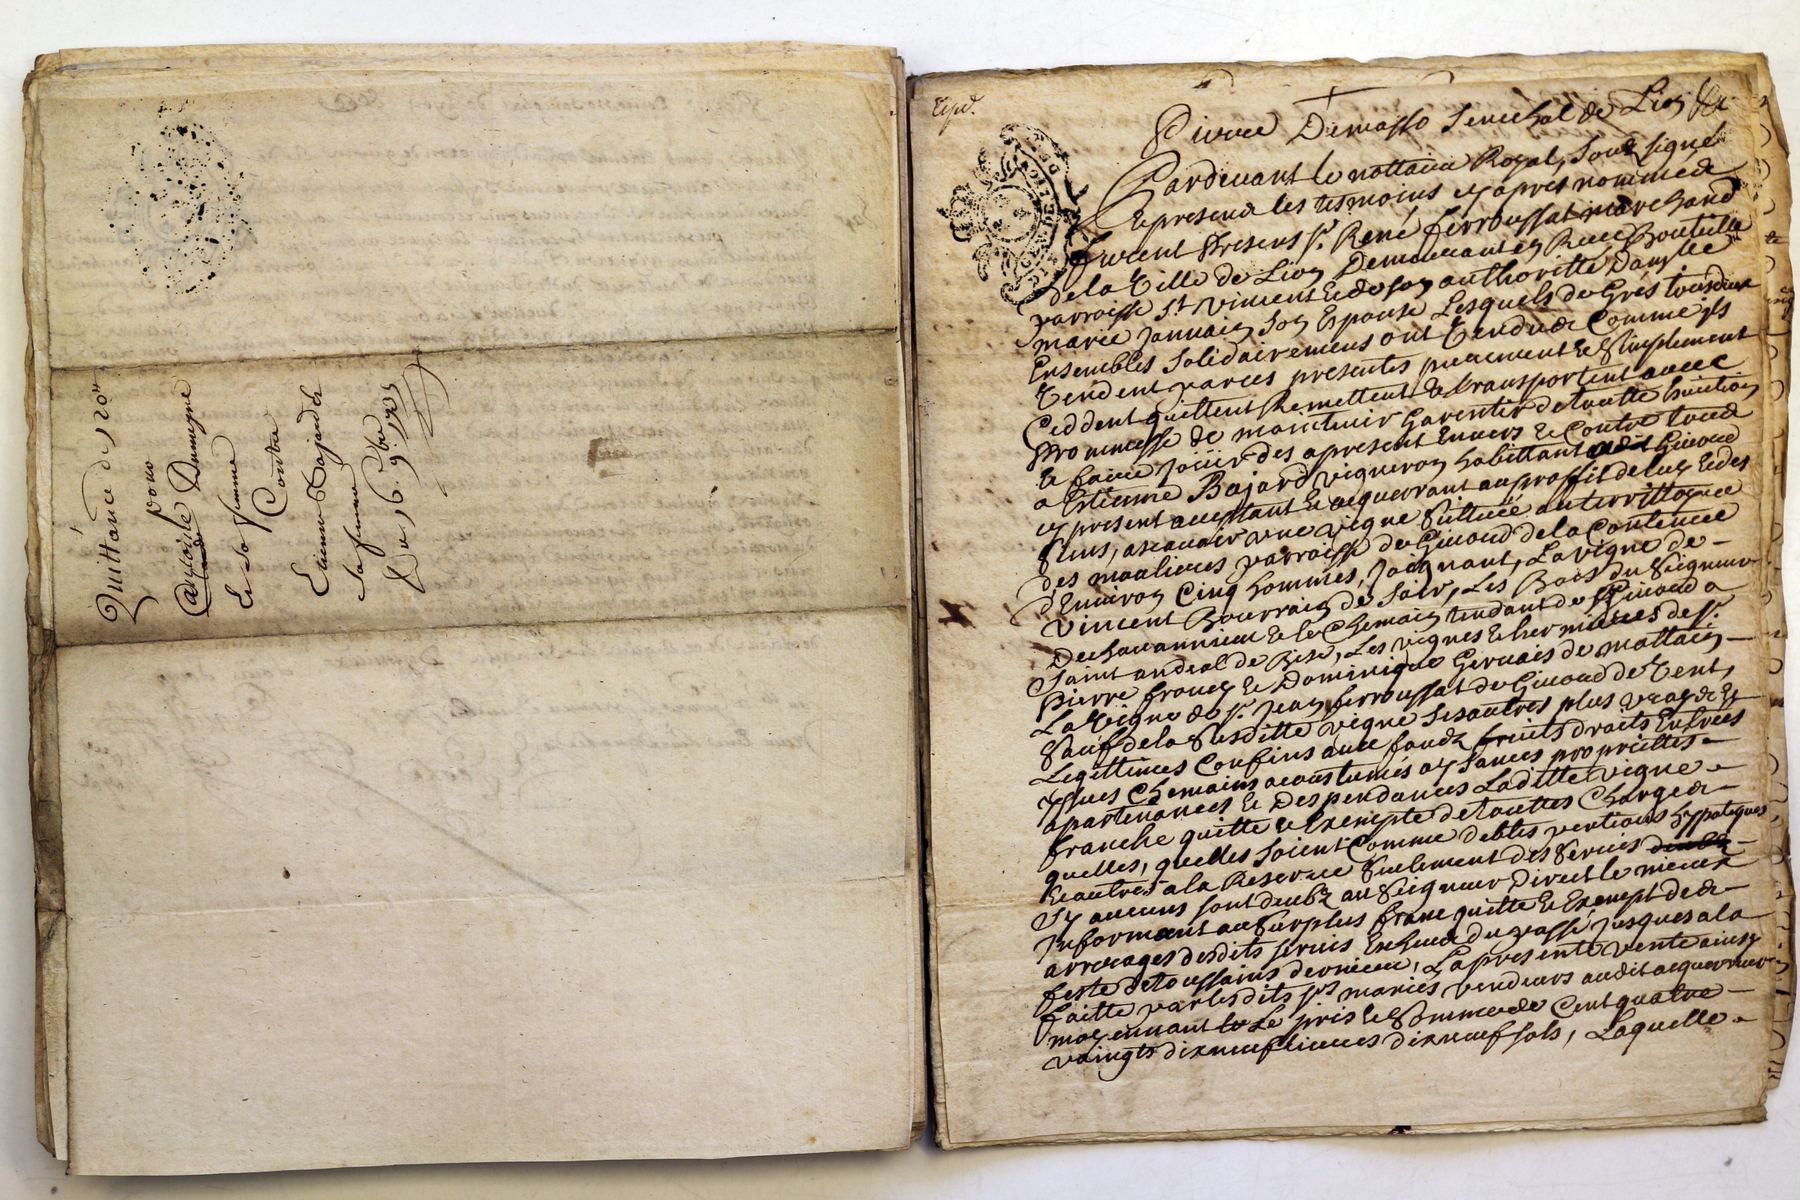 Quittance de 120ll
pour
Antoine Dumagne
Et sa femme
Contre
Etienne Bajard &
sa femme
Du 16 9bre 1723
Expd.
Pierre Demasso Senechal de Lion &c
Pardevant le nottaire Royal, Soub signé
Et presend les tesmoins cy apres nommed
furent Presens sr. René ferroussat marchand
de la Ville de Lion Demeurant en Rue Bouteille
parroisse st. Vincent Et de son authoritté Damlle
marie Jannain son Espouse Lesquels de Grés tous deux
Ensembles Solidairemens ont Vendud Comme ils
Vendent par ces presentes purement Et Simplement
Ceddent quittent Remettent Et transportent avec
Promesse de maintenir Garentir de toutte Eviction
Et faire Jouir des apresent Envers Et Contre toud
a Estienne Bajard vigneron habittant Givord
cy present acceptant Et acquerrant au proffit de luy Et des
siens, ascavoir une vigne Scittuée au territtoire
des moulieres parroisse de Givord de la Contenee
d'Environ Cinq hommes, Joignant, La vigne de -
Vincent Bourrain de soir, Les Bois du Seigneur
de Et le Chemain tendant de Givord a
Saint andeal de Bise, Les vignes Et hermittures de sr.
Pierre francq Et Dominique Gervais de mattain -
La Vigne de sr. Jean ferroussat de Givord de Vent,
Sauf de la Susditte vigne ses autres plus vrayd Et
Legittimes Confins avec fondz fruits droits Entrees
ysues Chemains acoustumés aysances propriettes -
apartenances Et Despendances Laditte vigne -
franche quitte Et Exempte de touttes Charged -
quelles, quelles soient Comme debtes pentions hyppoteques
Et autres a la Reserve Seulement des Servis -
sy aucuns sont deubz au Seigneur Direct le mieux
Informant au Surplus franc quitte Et Exempt de -
arrerages desdits servis Escheud du passé Jusques a la
feste de toussaint dernieu, La presente vente ainsy
faitte par lesdits srs mariés vendeurs audit acquerreur
moyennant le Le pris Et Somme de Cent quatre -
vaingts dixneuf livres dixneuf sols, Laquelle -